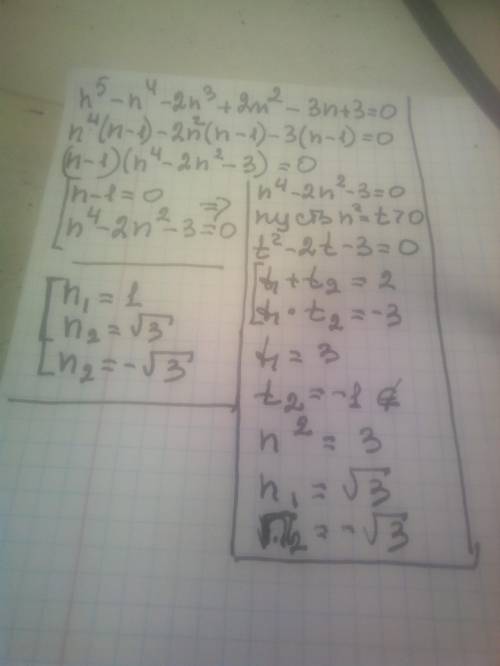 n⁵ - n⁴ - 2n³ + 2n² - 3n + 3 = 0
n⁴(n-1) - 2n²(n-1) - 3(n-1) = 0
(n-1)(n⁴ - 2n² - 3) = 0
[n-1 = 0
n⁴ - 2n² - 3 = 0 =>
n⁴ - 2n² - 3 = 0
пусть n² = t > 0
t² - 2t - 3 = 0
[t₁ + t₂ = 2
t₁ · t₂ = -3
t₁ = 3
t₂ = -1 ∉
n² = 3
n₁ = √3
n₂ = -√3
[n₁ = 1
n₂ = √3
n₂ = -√3